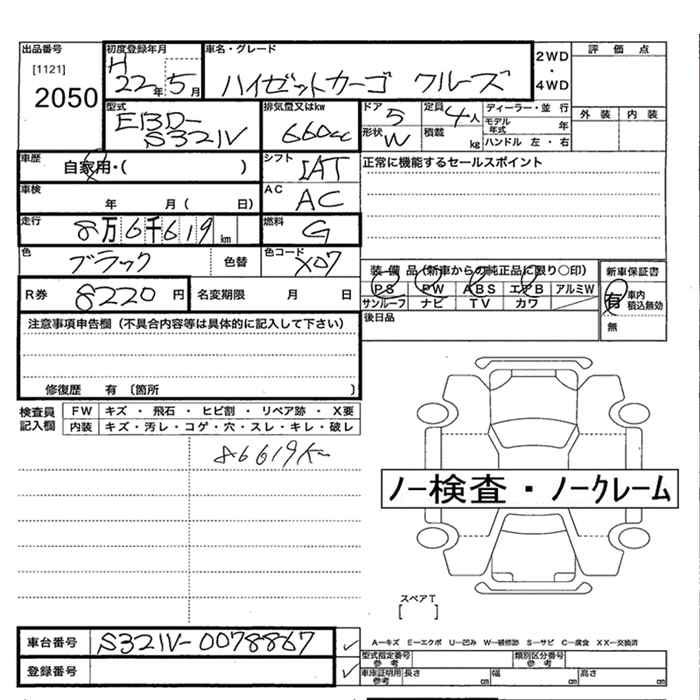 出品番号 初度登録年月 車名・グレード 評価点
[1121] H 22年 5月 ハイゼットカーゴ クルーズ 2WD・4WD
2050
型式 排気量又はkw ドア 5 定員 4人 ディーラー・並行 外装 内装
EBD-S321V 660cc 形状 W 積載 kg モデル年式 年
ハンドル 左・右
車歴 自家用・( ) シフト IAT 正常に機能するセールスポイント
車検 年 月( 日) AC AC
走行 8万6千619km 燃料 G
色 ブラック 色替 色コード X07 装備品(新車からの純正品に限り○印) 新車保証書
R券 8220円 名変期限 月 日 PS PW ABS エアB アルミW 有 車内積込無効
サンルーフ ナビ TV カワ 無
注意事項申告欄(不具合内容等は具体的に記入して下さい) 後日品
修復歴 有〔箇所 〕
検査員記入欄 FW キズ・飛石・ヒビ割・リペア跡・X要
内装 キズ・汚レ・コゲ・穴・スレ・キレ・破レ
86619K
ノー検査・ノークレーム
スペアT
[ ]
車台番号 S321V-0078867 ✓ A-キズ E-エクボ U-凹み W-補修跡 S-サビ C-腐食 XX-交換済
型式指定番号 参考 類別区分番号 参考
登録番号 ✓ 車庫証明用 参考 長さ cm 幅 cm 高さ cm